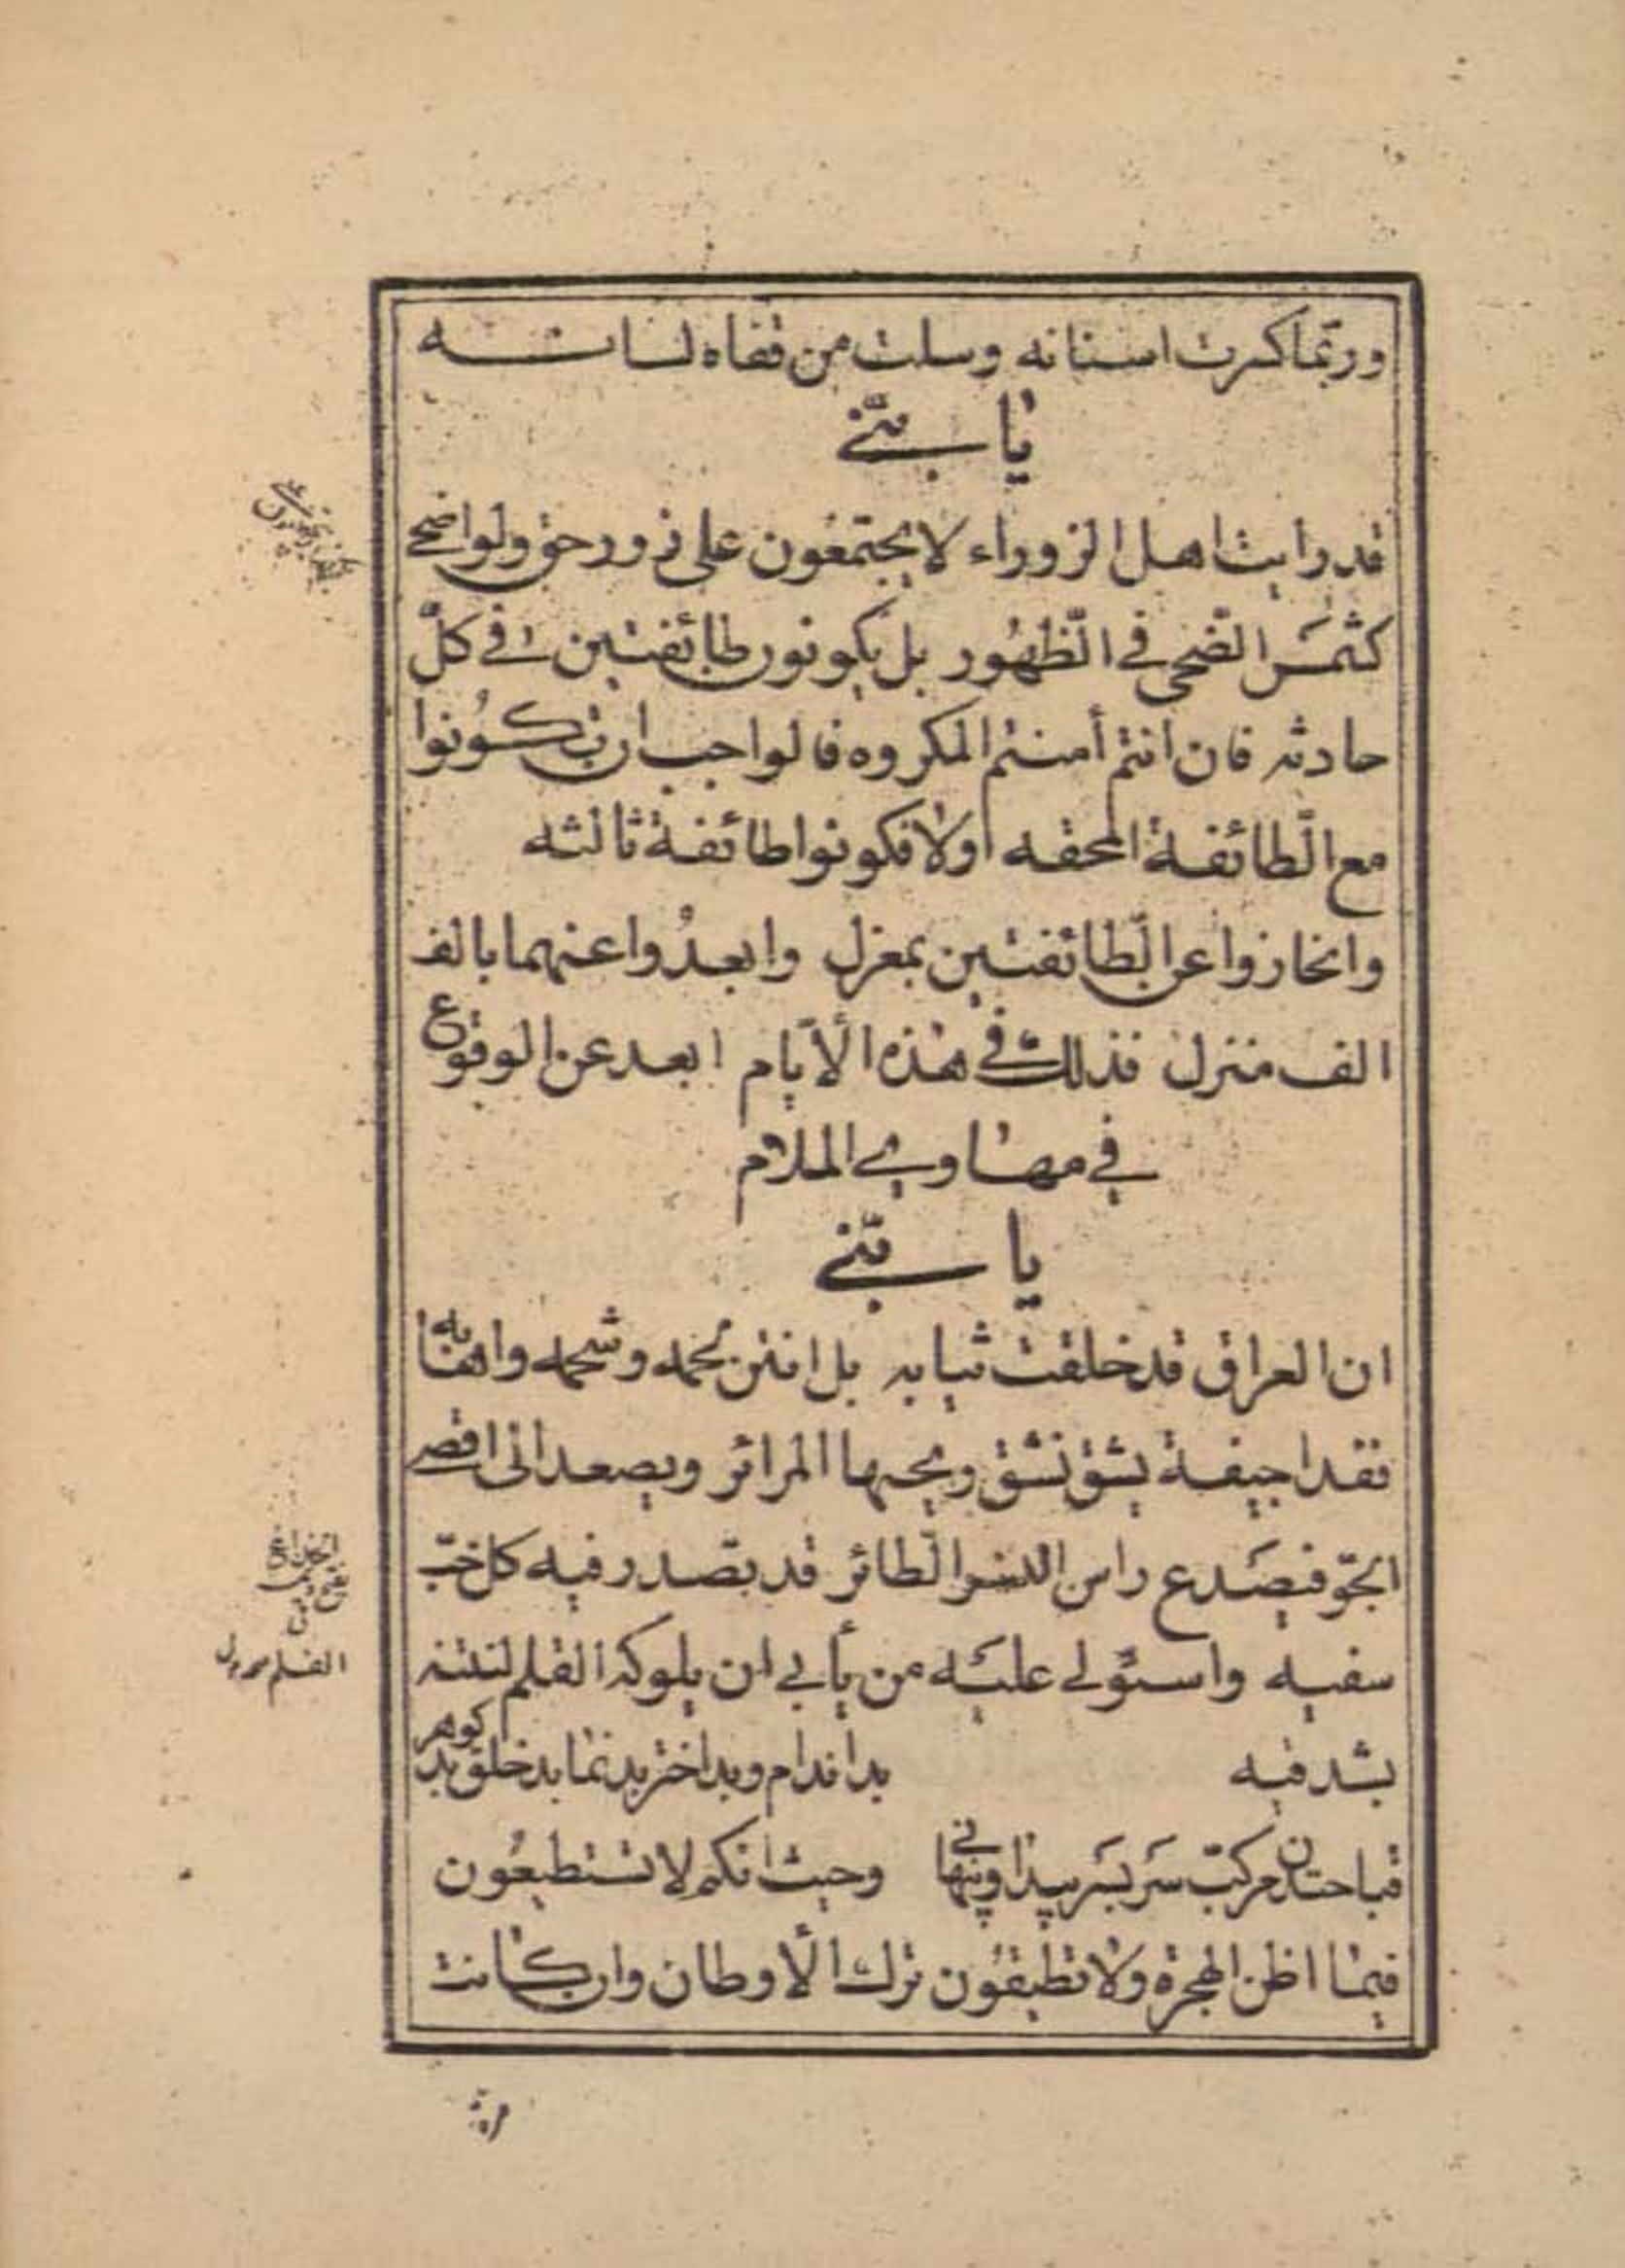 وربّما كسرت اسنانه وسلت من قفاه لسانه
يا بنيّ
قد رايت اهل الزوراء لا يجتمعون على زور حق ولو اضحى
كشمس الضّحى في الظّهور بل يكونون طائفتين في كلّ
حادثه فان انتم أمنتم المكروه فالواجب ان تكونوا
مع الطّائفة المحقه اولا فكونوا طائفة ثالثه
وانحازوا عن الطّائفتين بمعزل وابعدوا عنهما بالف
الف منزل فذلك في هذه الأيّام ابعد عن الوقوع
في مهاوي الملام
يا بنيّ
ان العراق قد خلقت ثيابه بل انتن لحمه وشحمه واهابه
فغدا جيفة يشق نشق ريحها المرائر ويصعد الى اقصى
الجوّ فيصدع راس النسر الطائر قد تصدر فيه كل خبّ
سفيه واستولى عليه من يأبى ان يلوكه القلم لنتنه
بشد فيه بد اندام وبد اختر بد نما بد خلق بد كوهر
قباحتدن مركّب سر بسر پيدا وپنهانى وحيث انكم لا تستطيعون
فيما اظن الهجرة ولا تطيقون ترك الأوطان وان كانت
القلم محمد